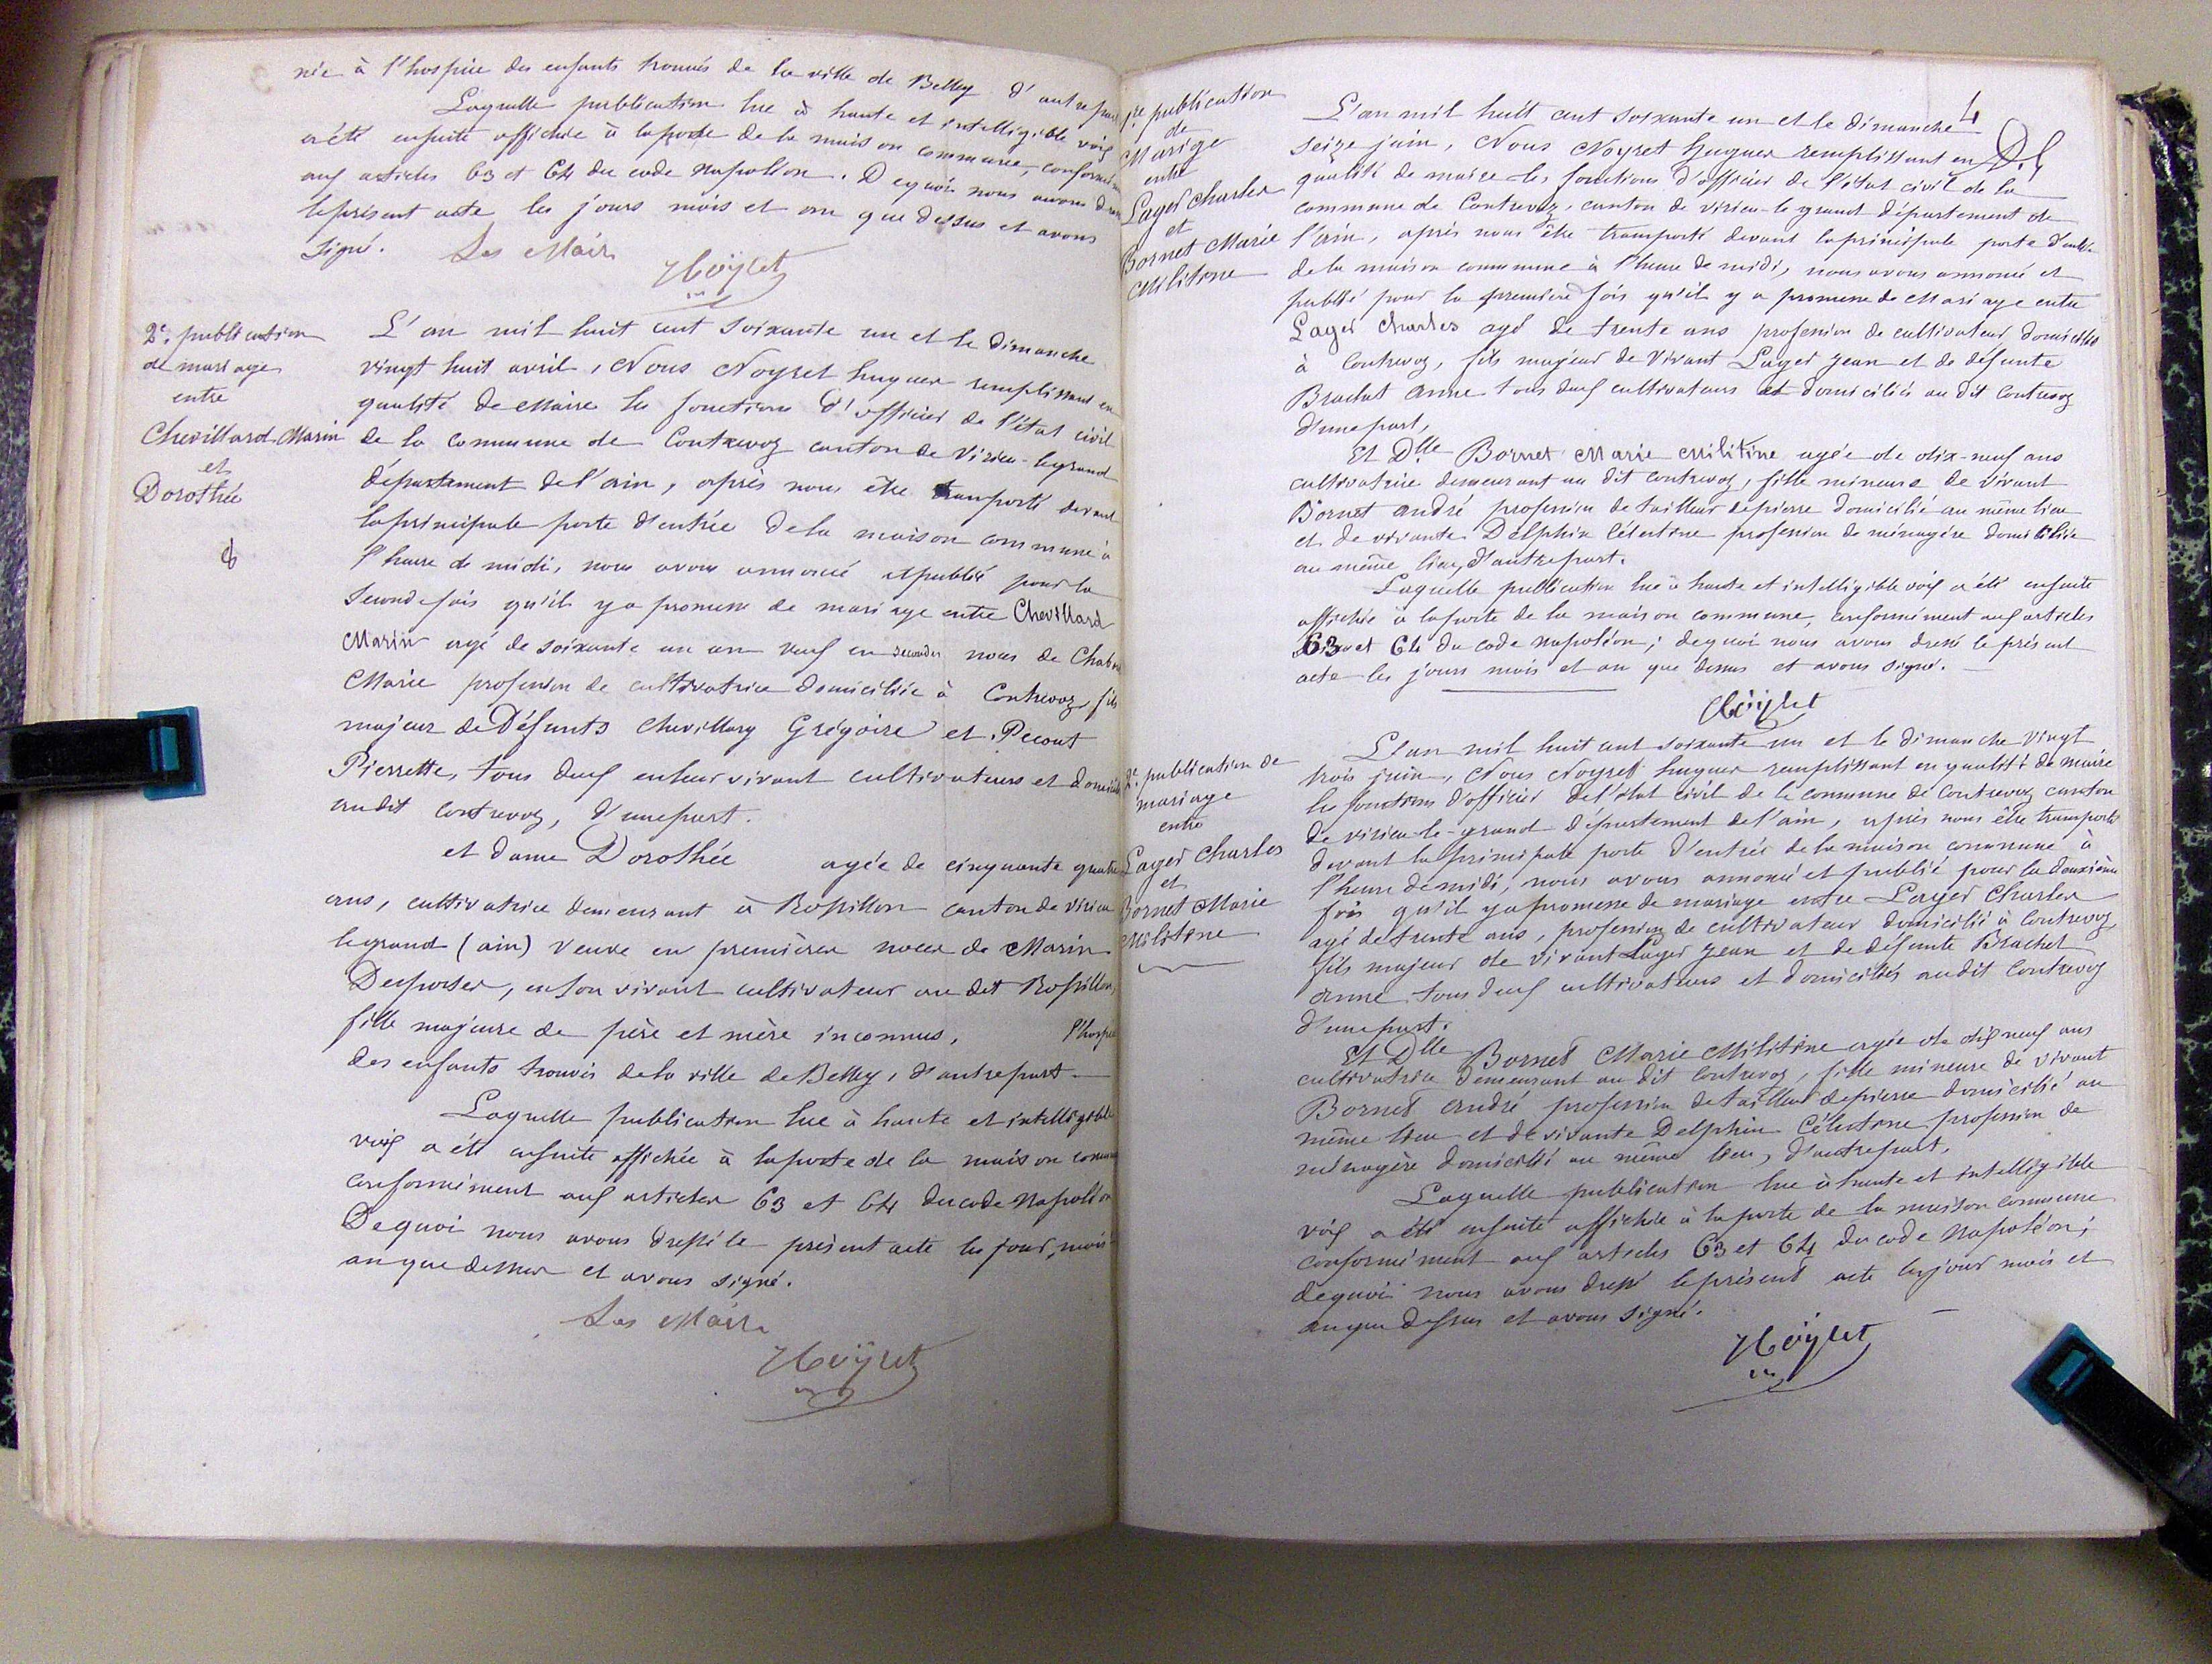 née à l'hospice des enfants trouvés de la ville de Belley d'autre part
Laquelle publication lue à haute et intelligible voix
a été ensuite affichée à la porte de la maison commune, conformément
aux articles 63 et 64 du code napoléon. De quoi nous avons dressé
le présent acte les jours mois et an que dessus et avons
signé.
Les Maire
Noÿret
2e publication
de mariage
entre
Chevillard Marin
et
Dorothée
L'an mil huit cent soixante un et le dimanche
vingt huit avril, Nous Noyret huguer remplissant en
qualité de Maire les fonctions d'officier de l'état civil
de la commune de Contrevoz canton de Virieu-le grand
département de l'ain, après nous être transporté devant
la principale porte d'entrée de la maison commune à
l'heure de midi, nous avons annoncé et publié pour la
seconde fois qu'il y a promesse de mariage entre Chevillard
Marin agé de soixante un an veuf en secondes noces de
Marie profession de cultivatrice domiciliée à Contrevoz, fils
majeur de Défunts Chevillard Grégoire et Pecout
Pierrette, tous deux en leur vivant cultivateurs et domiciliés
au dit contrevoz, d'une part.
et dame Dorothée agée de cinquante quatre
ans, cultivatrice demeurant à Rossillon canton de virieu
le grand (ain) veuve en premières noces de Marin
Desportes, en son vivant cultivateur au dit Rossillon,
fille majeure de père et mère inconnus, l'hospice
des enfants trouvés de la ville de Belley, d'autre part.
Laquelle publication lue à haute et intelligible
voix a été ensuite affichée à la porte de la maison commune
conformément aux articles 63 et 64 du code Napoléon
De quoi nous avons dressé le présent acte les jour, mois
an que dessus et avons signé.
Les Maire
Noÿret
4
1re publication
de
Mariage
entre
Layer Charles
et
Bornet Marie
Militine
L'an mil huit cent soixante un et le dimanche
seize juin, Nous Noyret huguer remplissant en
qualité de maire les fonctions d'officier de l'état civil de la
commune de Contrevoz, canton de virieu-le grand département de
l'ain, après nous être transporté devant la principale porte d'entrée
de la maison commune à l'heure de midi, nous avons annoncé et
publié pour la première fois qu'il y a promesse de Mariage entre
Layer Charles agé de trente ans profession de cultivateur domicilié
à Contrevoz, fils majeur de vivant Layer Jean et de défunte
Brachet Anne tous deux cultivateurs et domiciliés au dit Contrevoz
d'une part,
Et Dlle Bornet Marie Militine agée de dix-neuf ans
cultivatrice demeurant au dit contrevoz, fille mineure de vivant
Bornet André profession de tailleur de pierre domicilié au même lieu
et de vivante Delphin Célestine profession de ménagère domiciliée
au même lieu, d'autre part.
Laquelle publication lue à haute et intelligible voix a été ensuite
affichée à la porte de la maison commune, conformément aux articles
63 et 64 du code napoléon; de quoi nous avons dressé le présent
acte les jours mois et an que dessus et avons signé.
Noÿret
2e publication de
mariage
entre
Layer Charles
et
Bornet Marie
Militine
L'an mil huit cent soixante un et le dimanche vingt
trois juin, Nous Noyret huguer remplissant en qualité de maire
les fonctions d'officier de l'état civil de la commune de Contrevoz canton
de virieu-le-grand département de l'ain, après nous être transporté
devant la principale porte d'entrée de la maison commune à
l'heure de midi, nous avons annoncé et publié pour la deuxième
fois qu'il y a promesse de mariage entre Layer Charles
agé de trente ans, profession de cultivateur domicilié à Contrevoz,
fils majeur de vivant Layer Jean et de défunte Brachet
Anne tous deux cultivateurs et domiciliés au dit Contrevoz
d'une part.
Et Dlle Bornet Marie Militine agée de dix neuf ans
cultivatrice demeurant au dit Contrevoz, fille mineure de vivant
Bornet André profession de tailleur de pierre domicilié au
même lieu et de vivante Delphin Célestine profession de
ménagère domicilié au même lieu, d'autre part,
Laquelle publication lue à haute et intelligible
voix a été ensuite affichée à la porte de la maison commune
conformément aux articles 63 et 64 du code Napoléon;
de quoi nous avons dressé le présent acte les jour mois et
an que dessus et avons signé.
Noÿret